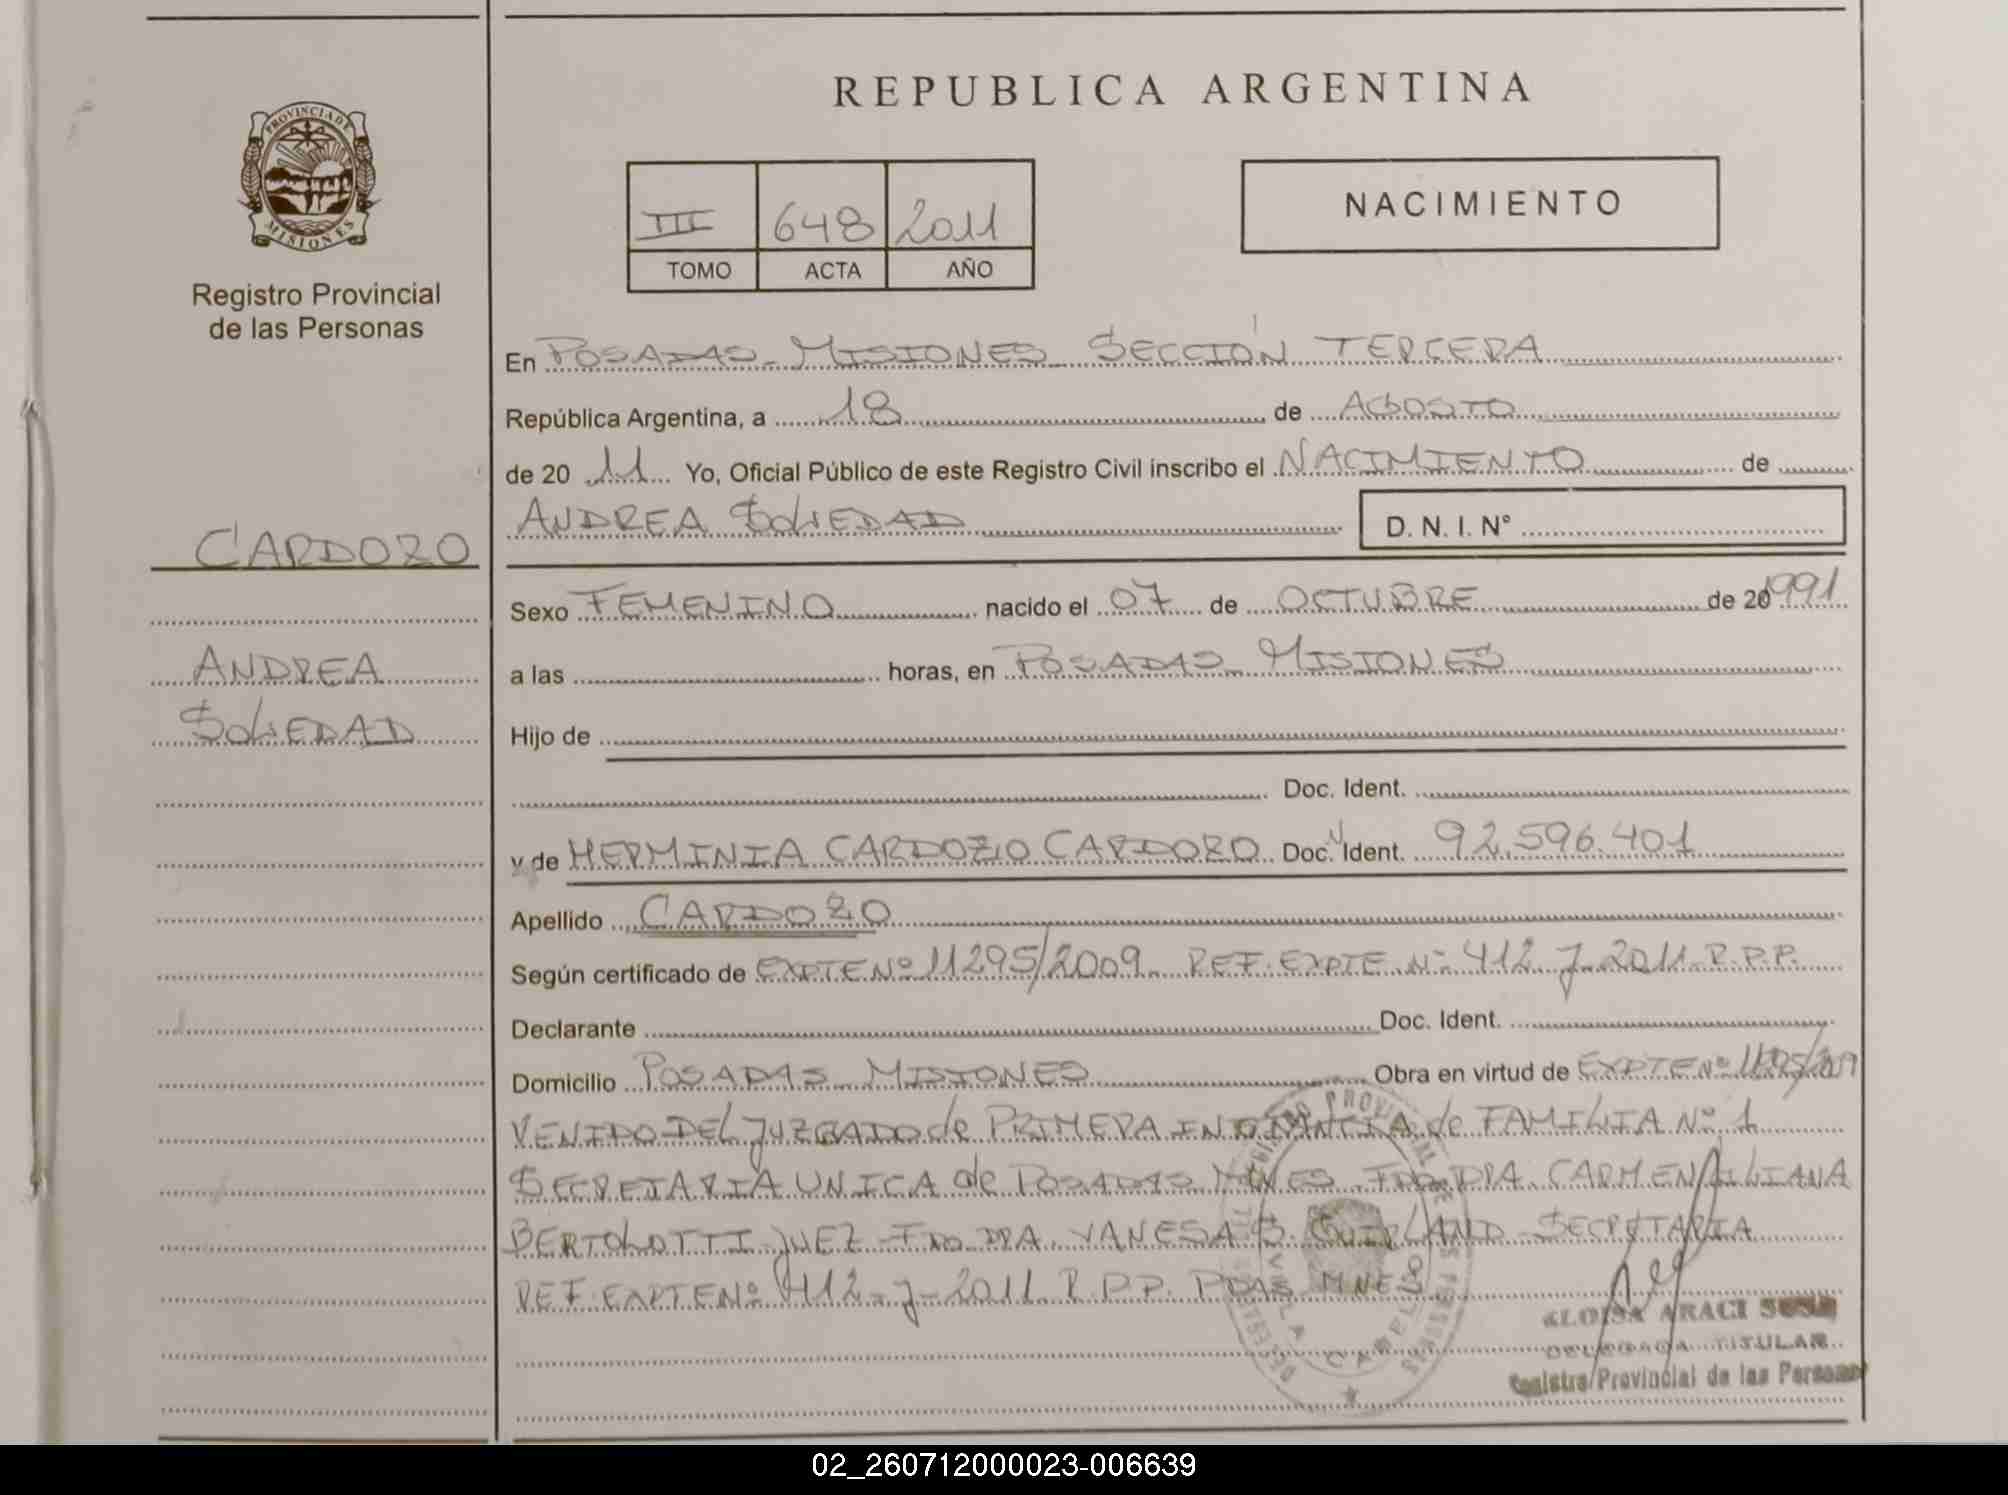 REPUBLICA ARGENTINA
PROVINCIA DE
MISIONES
Registro Provincial
de las Personas
III 648 2011
TOMO ACTA AÑO
NACIMIENTO
En POSADAS - MISIONES SECCIÓN TERCERA
República Argentina, a 18 de AGOSTO
de 20 11 Yo, Oficial Público de este Registro Civil inscribo el NACIMIENTO de
ANDREA SOLEDAD D. N. I. N°
CARDOZO
Sexo FEMENINO nacido el 07 de OCTUBRE de 20 1991
ANDREA
a las horas, en POSADAS - MISIONES
SOLEDAD
Hijo de
Doc. Ident.
y de HERMINIA CARDOZO CARDOZO Doc. Ident. 92.596.401
Apellido CARDOZO
Según certificado de EXPTE Nº 11295/2009 REF. EXPTE. Nº 412 J-2011 R.P.P.
Declarante Doc. Ident.
Domicilio POSADAS MISIONES Obra en virtud de EXPTE Nº
VENIDO DEL JUZGADO de PRIMERA de FAMILIA Nº 1
SECRETARIA UNICA de POSADAS MNES FDO DRA. CARMEN LILIANA
BERTOLOTTI JUEZ - FDO DRA. VANESA SECRETARIA
REF. EXPTE Nº 412 - J - 2011 R.P.P. PDAS MNES
ARACI
DELEGADA TITULAR
Registro Provincial de las Personas
VILLA CABELLO
02_260712000023-006639